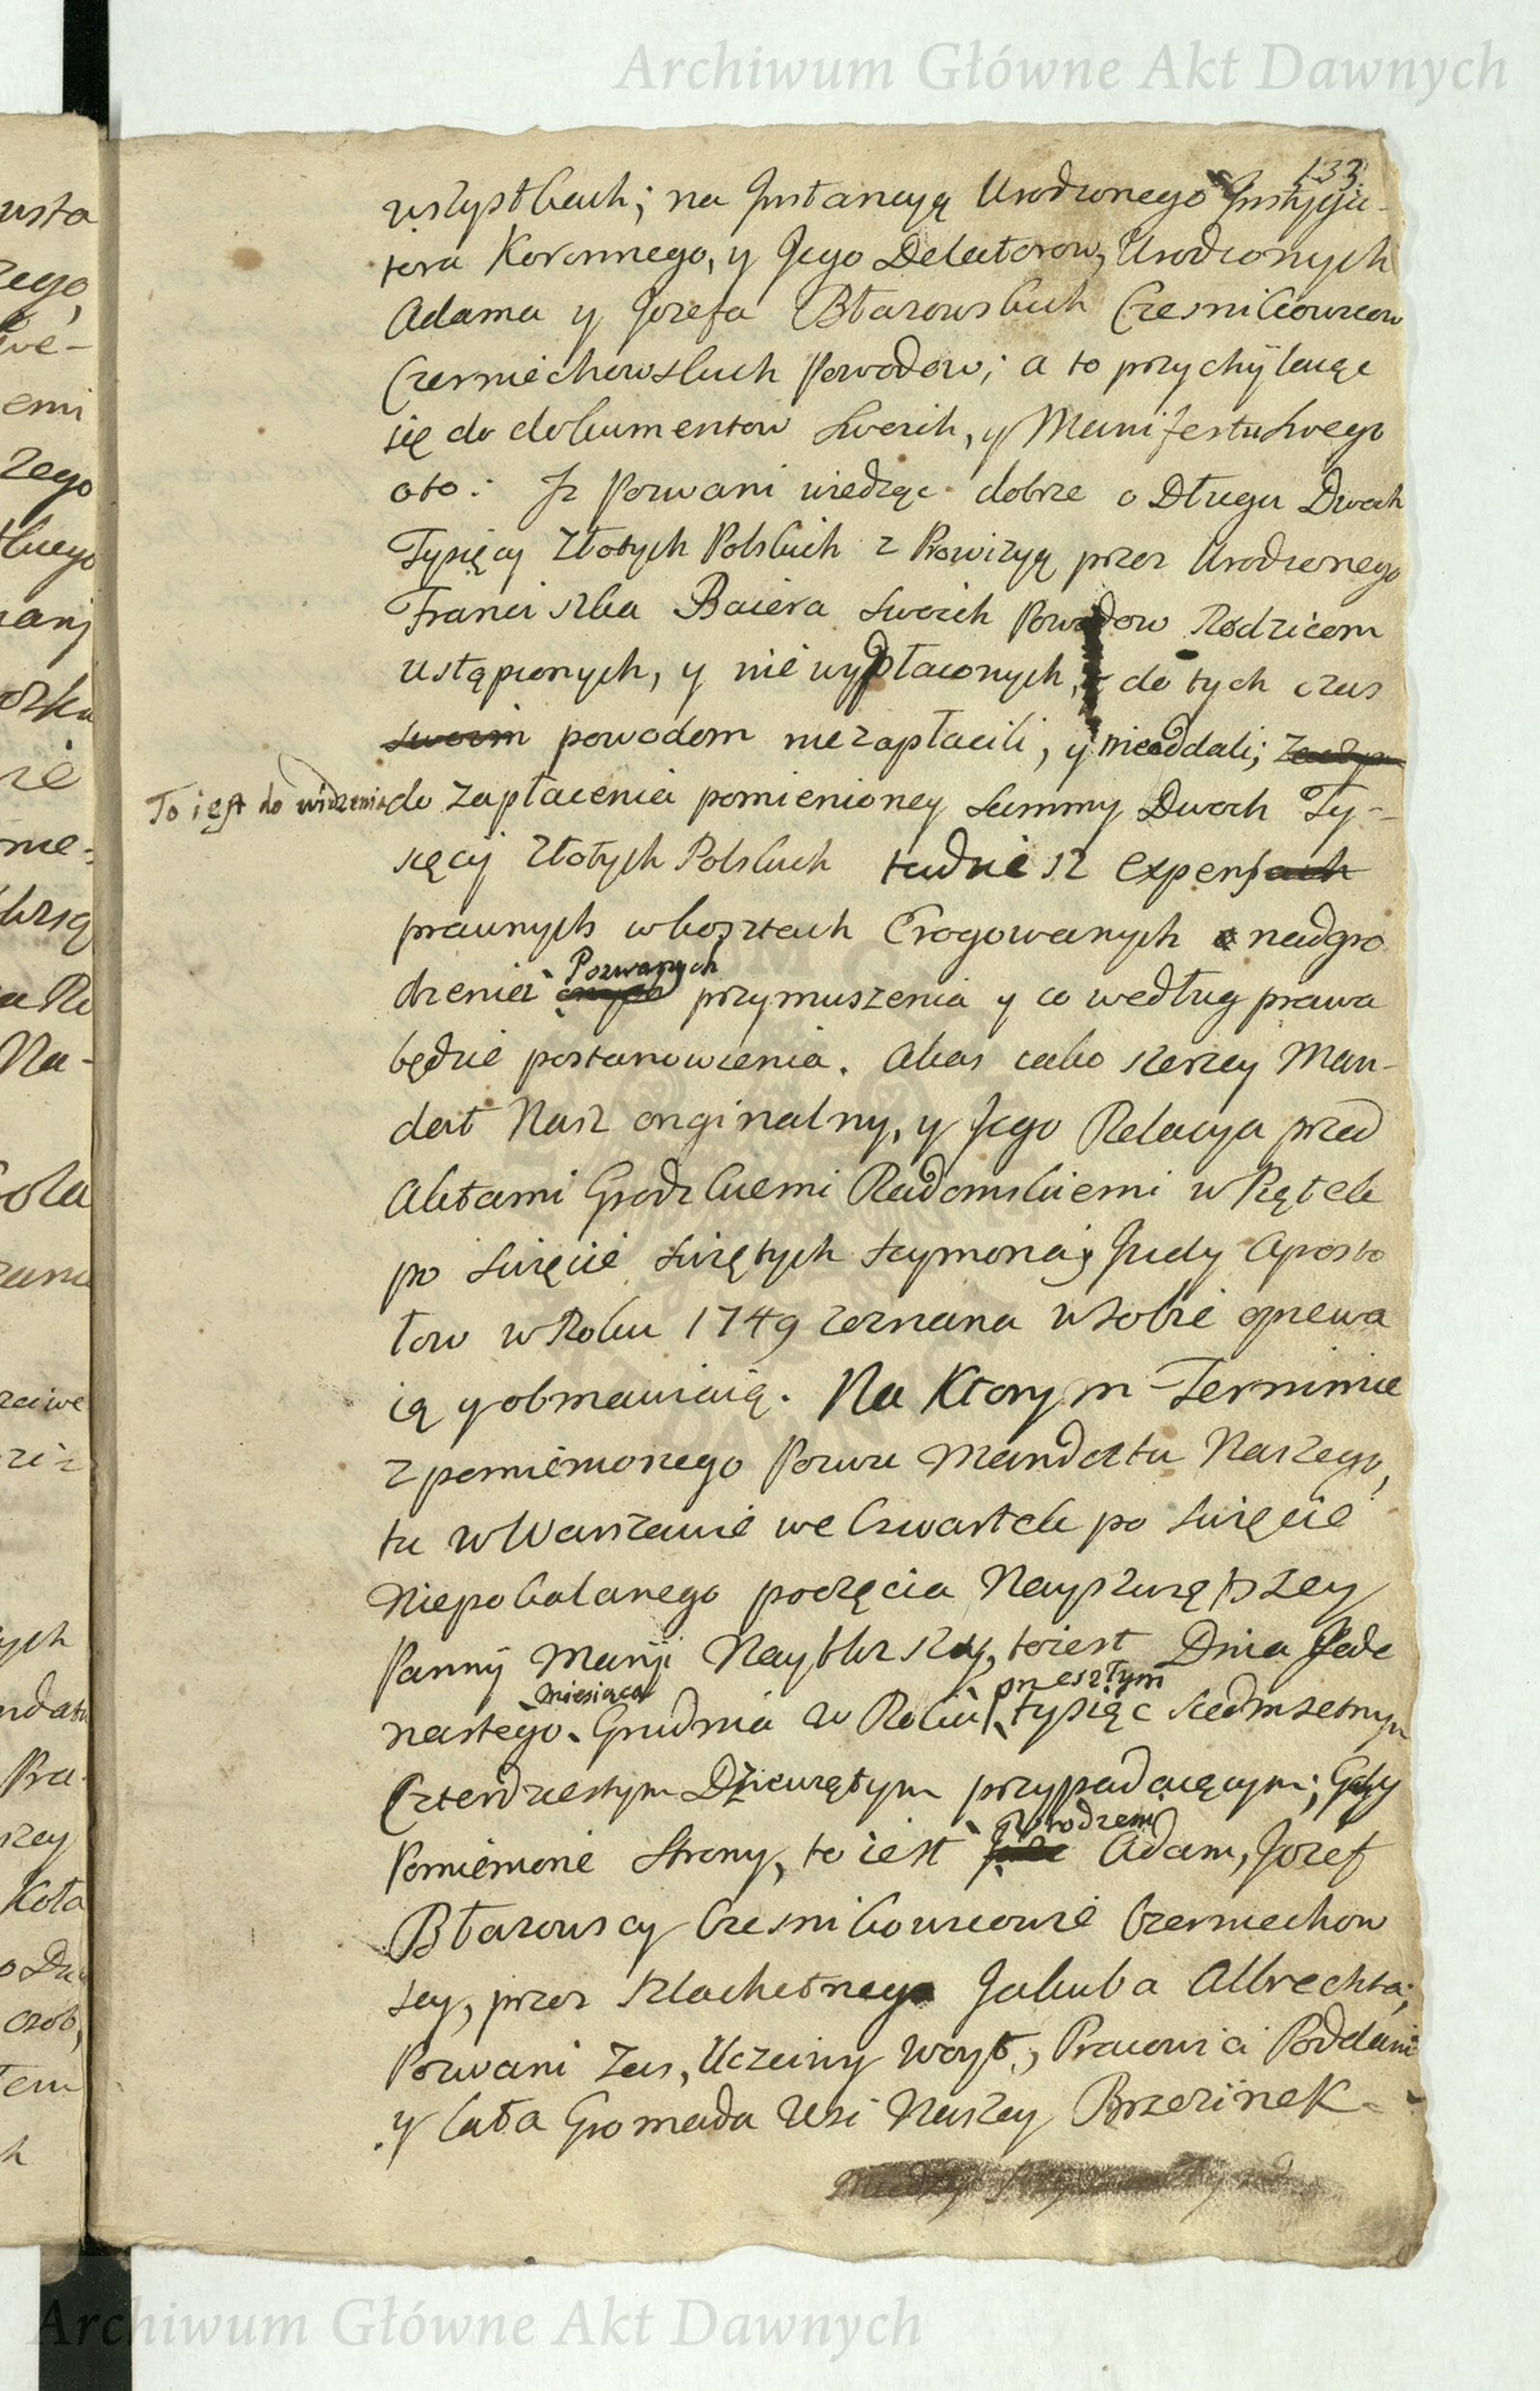 Archiwum Główne Akt Dawnych
133
wszystkich; na Jnstancyą Urodzonego Jnstyga-
tora Koronnego, y Jego Delatorow, Urodzonych
Adama y Jozefa Błazowskich Czesnikowiczow
Czerniechowskich Powodow; a to przychylaiąc
się do dokumentow swoich, y Manifestu swego
oto: Jz Pozwani wiedząc dobrze o Długu Dwoch
Tysięcy Złotych Polskich z Prowizyą przez Urodzonego
Franciszka Baiera swoich Powodow Rodzicom
ustąpionych, y nie wypłaconych, do tych czas
swoim powodom niezapłacili, y nieoddali;
To iest do widzenia do zapłacenia pomienioney Summy Dwoch Ty-
sięcy Złotych Polskich tudziesz expensach
prawnych w kosztach Erogowanych nadgro
dzenia Pozwanych przymuszenia y co według prawa
będzie postanowienia. Akas iako szerzey Man-
dat Nasz orginalny, y Jego Relacya przed
Aktami Grodzkiemi Radomskiemi w Piątek
po Swięcie Swiętych Szymona y Judy Aposto
łow w Roku 1749 zeznana w sobie opiewa
ią y obmawiaią. Na Ktorym Terminie
z pomienionego Pozwu Mandatu Naszego,
tu w Warszawie we Czwartek po Swięcie
Niepokalanego poczęcia Nayswiętszey
Panny Maryi Naybliszszy, toiest Dnia Jede
nastego miesiąca Grudnia w Roku przeszłym tysiąc siedmsetnym
Czterdziestym Dziewiętym przypadaiącym; Gdy
Pomienione Strony, to iest Urodzeni Adam, Jozef
Błazowscy Czesnikowiczowie Czerniechow
scy, przez Szlachetnego Jakuba Albrechta;
Pozwani zas, Uczciwy Woyt, Pracowici Poddani
y cała Gromada Wsi Naszey Brzezinek
Archiwum Główne Akt Dawnych